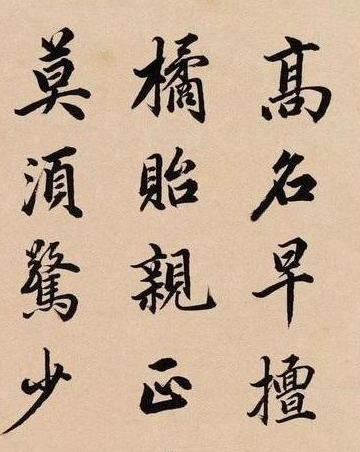 高名早擅
橘貽親正
莫須驚少